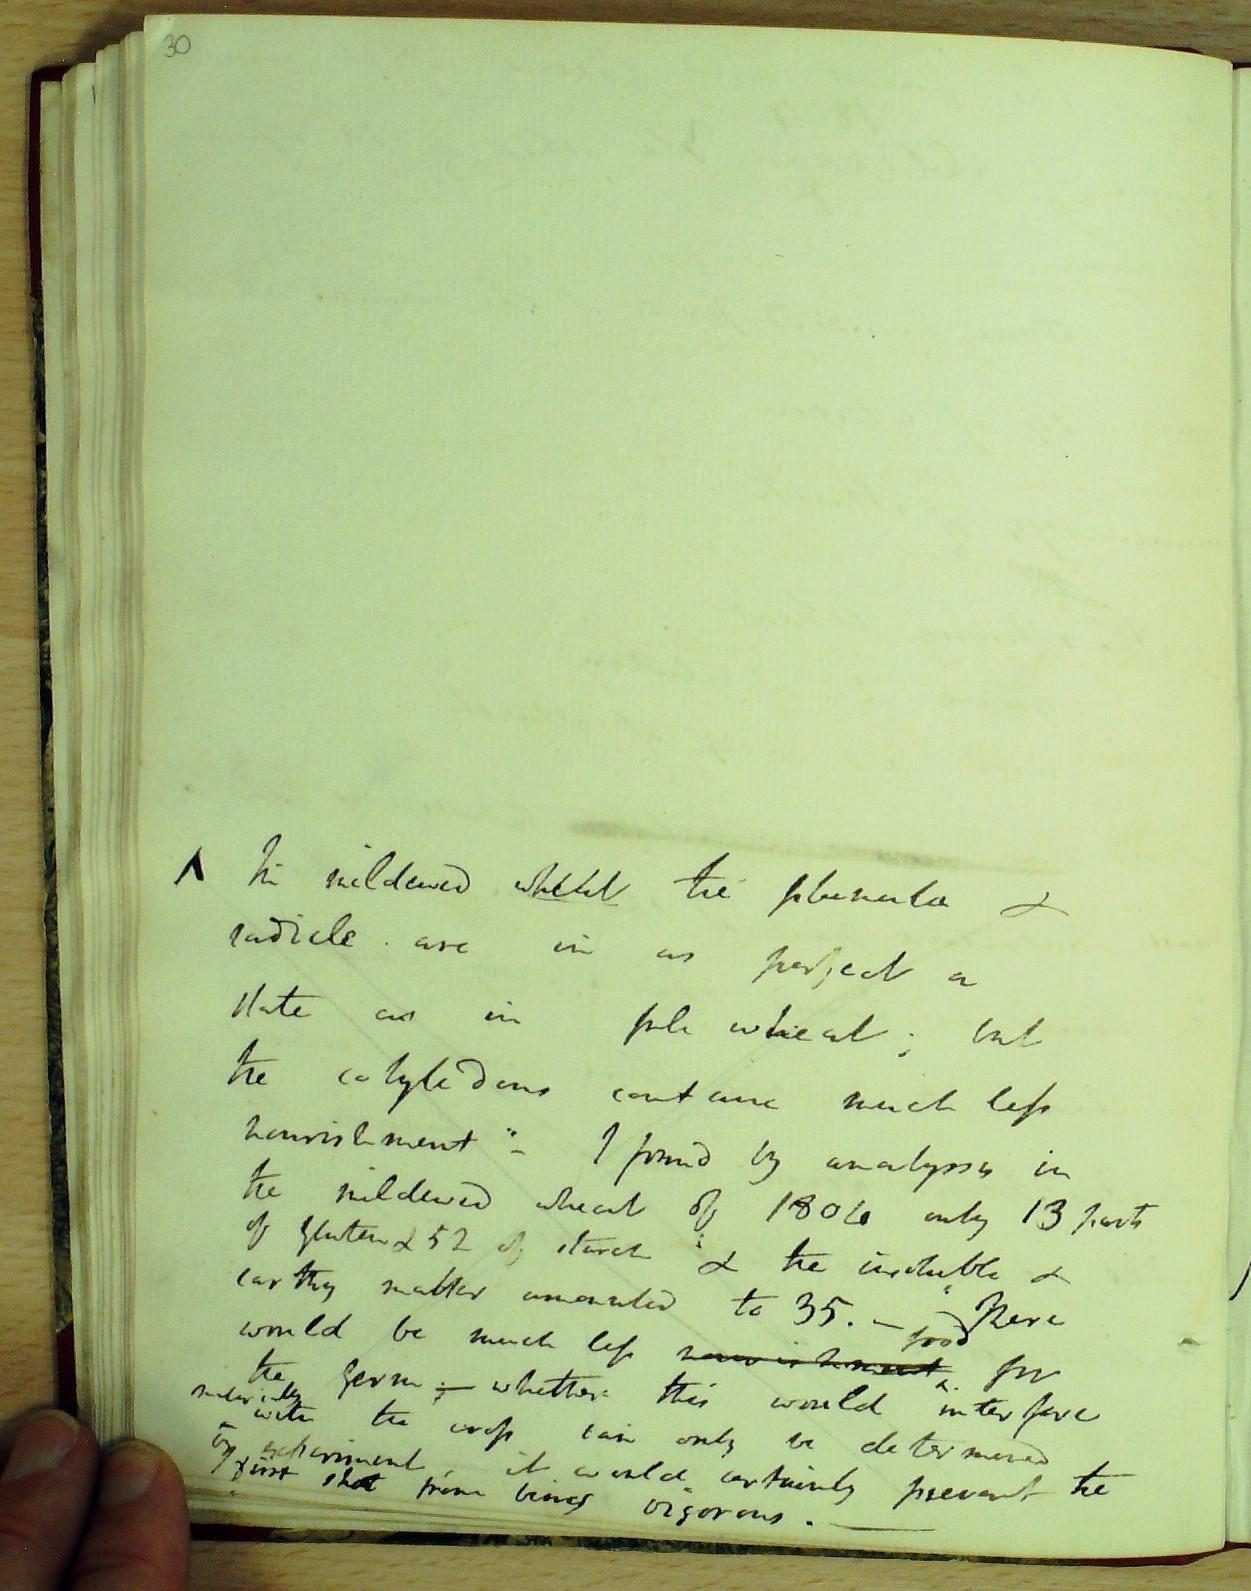 30
In mildewed wheat the plumula &
radicle are in as perfect a
state as in wheat; but
the cotyledons contain much less
nourishment"- I found by analysis in
the mildewed wheat of 1806 only 13 parts
of gluten & 52 of starch & the insoluble &
earthy matter amounted to 35. — There
food
would be much less nourishment for
the germ; — whether this would interfere
materially
with the crop can only be determined
by experiment, it would certainly prevent the
first shot from being vigorous. —